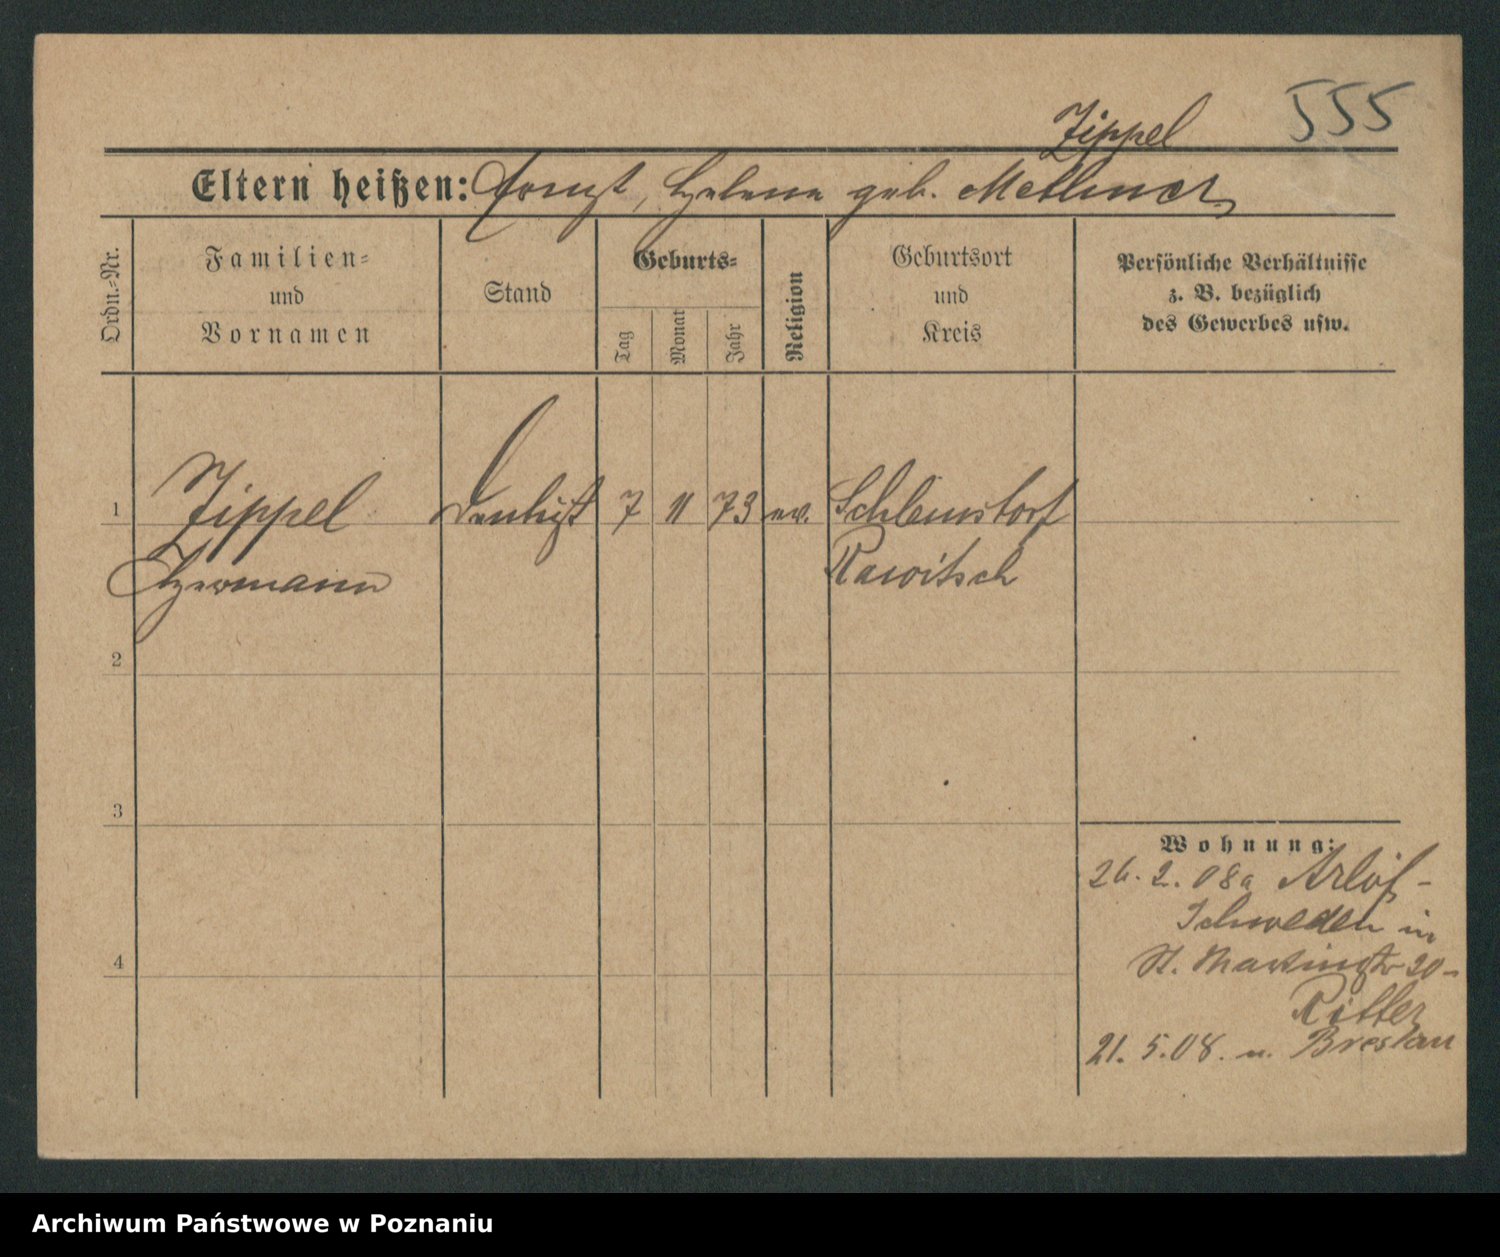 555
Zippel
Eltern heißen: Ernst, Helene geb. Methner
Ordn.-Nr.
Familien-
und
Vornamen
Stand
Geburts-
Tag
Monat
Jahr
Religion
Geburtsort
und
Kreis
Persönliche Verhältnisse
z. B. bezüglich
des Gewerbes usw.
1 Zippel Dentist 7 11 73 ev.
Hermann Rawitsch
2
3
4
Wohnung:
26. 2. 08 a Arlöf-
Schweden in
St. Martinstr 20-
Ritter
21. 5. 08. n. Breslau
Archiwum Państwowe w Poznaniu